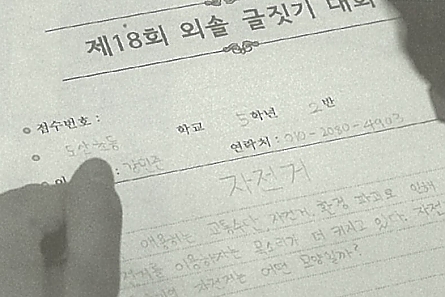 제18회 외솔 글짓기 대회
접수번호 :
도산초등 학교 5학년 2반
: 강현준 연락처 : 010-2080-4903
자전거
애용하는 교통수단, 자전거. 환경 파괴로 인해
이용하자는 목소리가 더 커지고 있다. 자전
자전거는 어떤 모양일까?